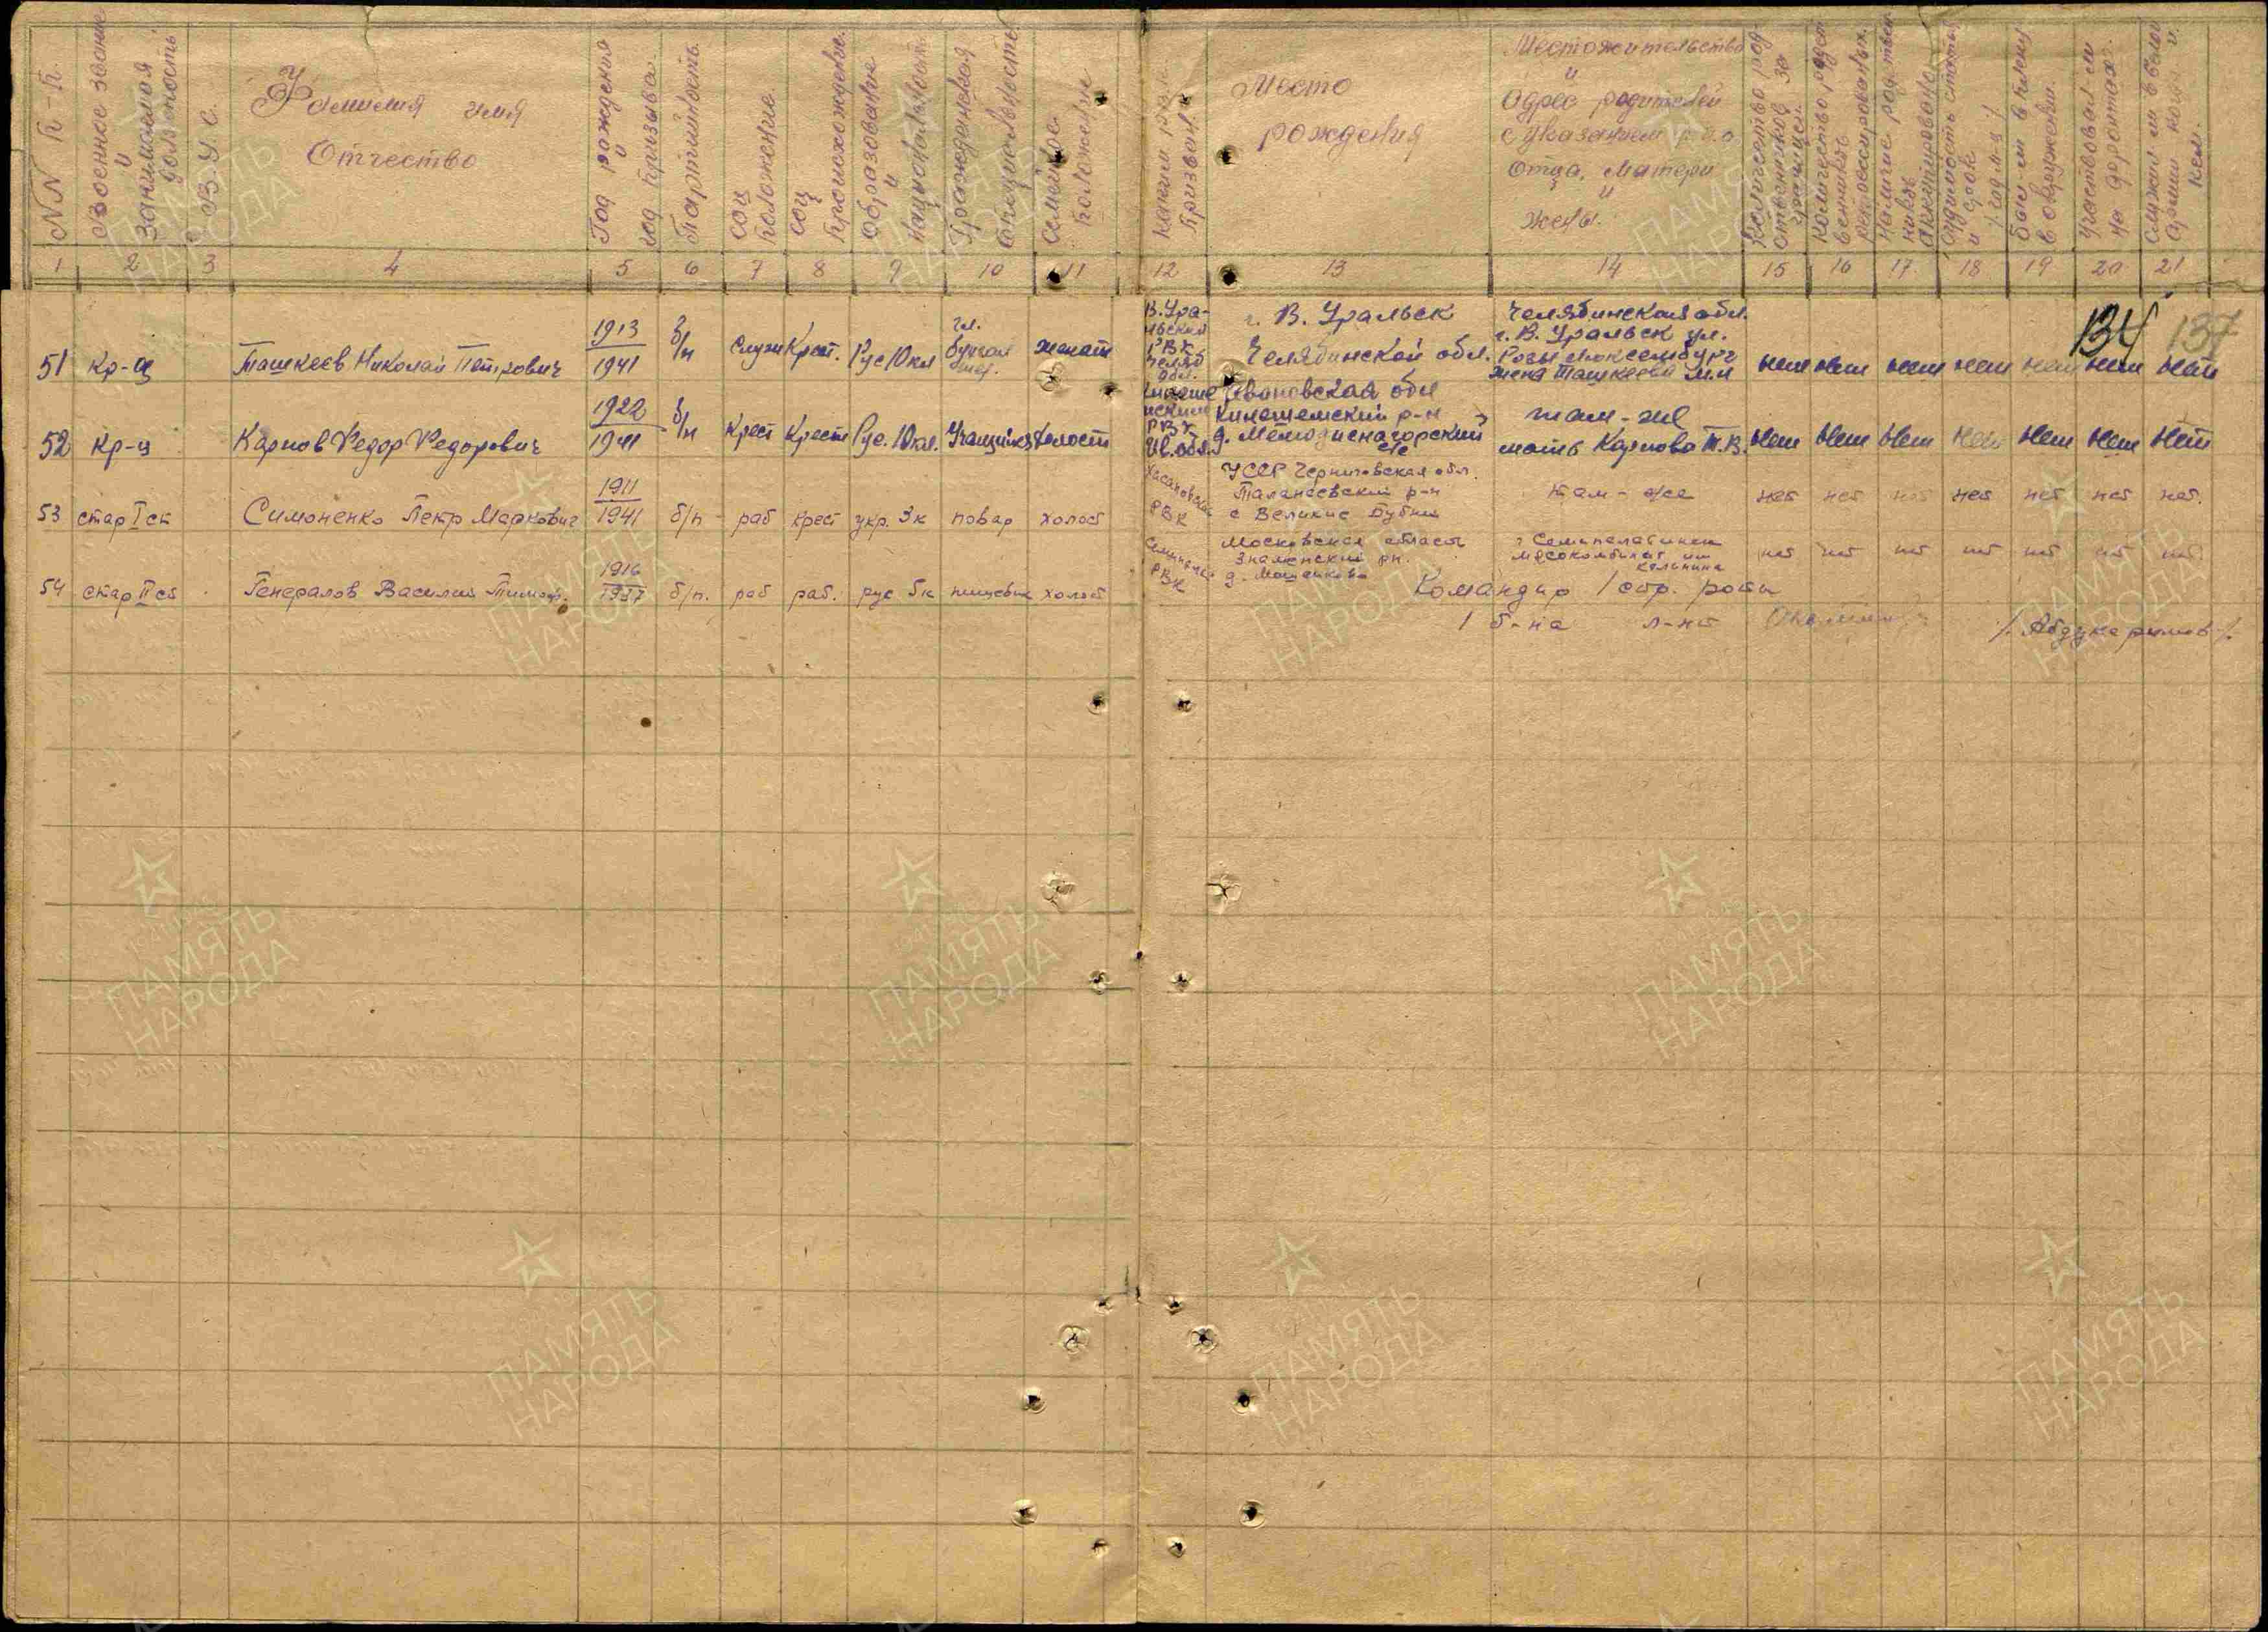 NN п-п.
Военное звание
и
занимаемая
должность
В.У.С.
Фамилия имя
Отчество
Год рождения
и
год призыва.
Партийность.
Соц
положение.
Соц
происхождение.
Образование
и
национальность
Гражданская
специальность
Семейное
положение
Каким РВК
призван.
Место
рождения
Местожительство
и
Адрес родителей
с указанием и.о.
Отца, матери
и
жены.
Количество род-
ственников за
границей.
Количество родст
венников
репрессированных.
Наличие родствен
ников
Судимость статья
и
срок
Был ли в плену
в окружении.
Участвовал ли
на фронтах.
Служил ли в белой
Армии когда и
кем.
1 2 3 4 5 6 7 8 9 10 11 12 13 14 15 16 17 18 19 20 21
134 137
51 Кр-ц Ташкеев Николай Петрович 1913 1941 б/п Служ Крест. Рус 10 кл гл. бухгал тер. женат
В.Ура-
льским
РВК
Челяб
обл.
г. В. Уральск
Челябинской обл.
Челябинская обл.
г. В. Уральск ул.
Розы Люксембург
жена Ташкеева М.И
нет нет нет нет нет нет нет
52 Кр-ц Карпов Федор Федорович 1922 1941 б/п Крест Крест Рус. 10 кл. Учащийся Холост
РВК
Ив. обл.
Ивановская обл
Кинешемский р-н
там-же
мать Карпова Т.В.
нет нет нет нет нет нет нет
53 стар I ст Симоненко Петр Маркович 1911 1941 б/п - раб крест укр. 3к повар холост
Хасановский
РВК
УССР Черниговская обл.
Талалаевский р-н
с Великие Бубны
там-же
нет нет нет нет нет нет нет.
54 стар II ст Генералов Василий Тимоф. 1916 1937 б/п. раб раб. рус 5к пищевик холост
РВК
Московская область
Знаменский рн.
г Семипалатинск
мясокомбинат им
Калинина
нет нет нет нет нет нет нет
Командир 1 стр. роты
1 б-на л-нт /Абдукаримов/.
ПАМЯТЬ
НАРОДА